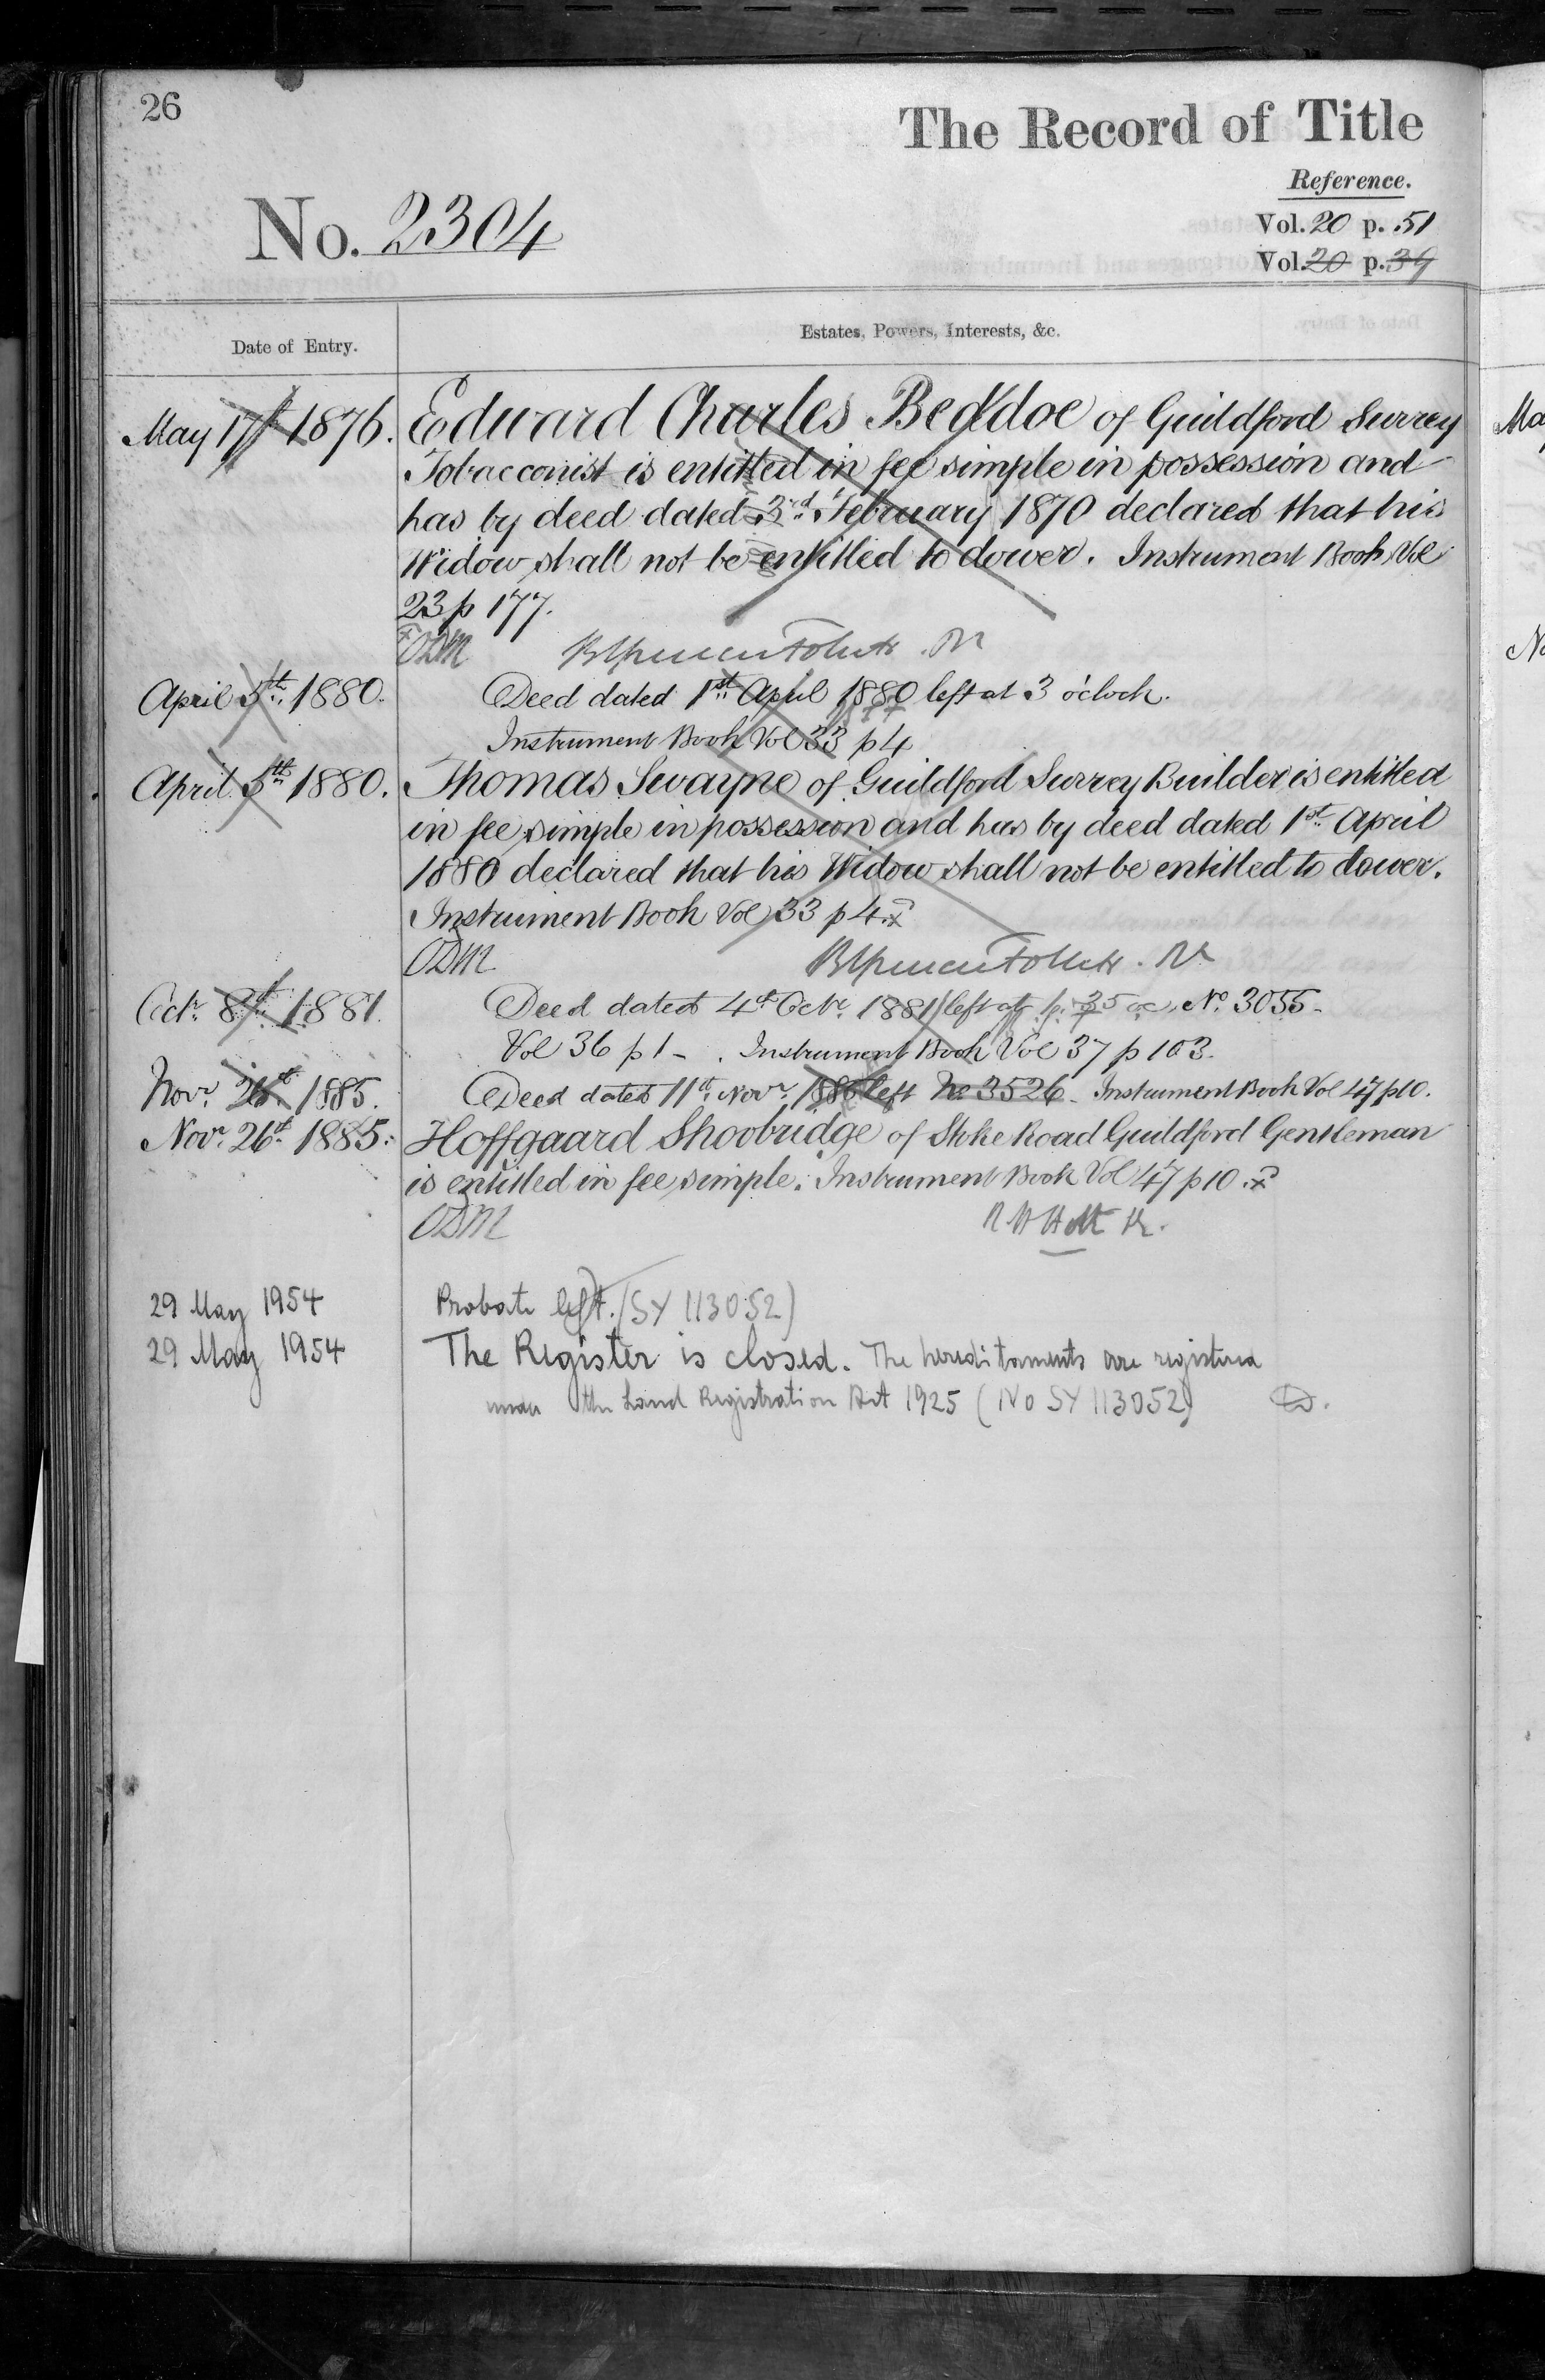 26
The Record of Title
Reference.
No. 2304
Vol. 20 p. 51
Vol. 20 p. 39
Date of Entry.
Estates, Powers, Interests, &c.
May 17th 1876. Edward Charles Beddoe of Guildford Surrey
Tobacconist is entitled in fee simple in possession and
has by deed dated 3rd February 1870 declared that his
Widow shall not be entitled to dower. Instrument Book Vol
23 p 177.
ODM
April 5th 1880. Deed dated 1st April 1880 left at 3 o'clock.
Instrument Book Vol 33 p 4
April 5th 1880. Thomas Swayne of Guildford Surrey Builder is entitled
in fee simple in possession and has by deed dated 1st April
1880 declared that his Widow shall not be entitled to dower.
Instrument Book Vol 33 p 4.
ODM
Octr. 8th 1881. Deed dated 4th Octr. 1881 left at No. 3055.
Vol 36 p 1 - . Instrument Book Vol 37 p 103.
Novr. 26th 1885. Deed dated 11th Novr. 1885 left No 3526. Instrument Book Vol 47 p 10.
Novr. 26th 1885. Hoffgaard Shoobridge of Stoke Road Guildford Gentleman
is entitled in fee simple. Instrument Book Vol 47 p 10.
ODM
29 May 1954 Probate left. (SY 113052)
29 May 1954 The Register is closed. The hereditaments are registered
under the Land Registration Act 1925 (No SY 113052)